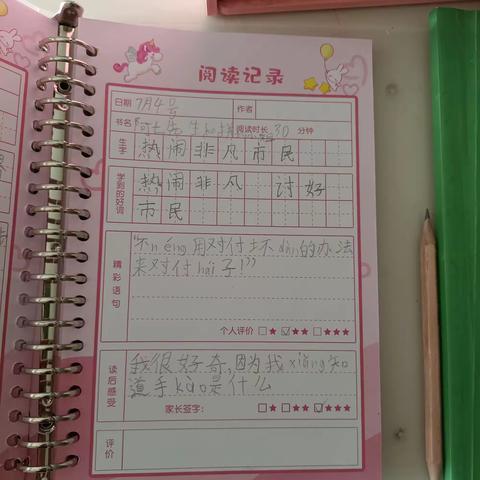 阅读记录
日期 7月4号 作者
书名 阅读时长 30 分钟
生字 热闹非凡市民
学到的好词 热闹非凡 讨好
市民
精彩语句 "不néng用对付坏dàn的办法
来对付hái子！"
个人评价 □★ □★★ □★★★
读后感受 我很好奇,因为我xiǎng知
道手kào是什么
家长签字： □★ □★★ □★★★
评价